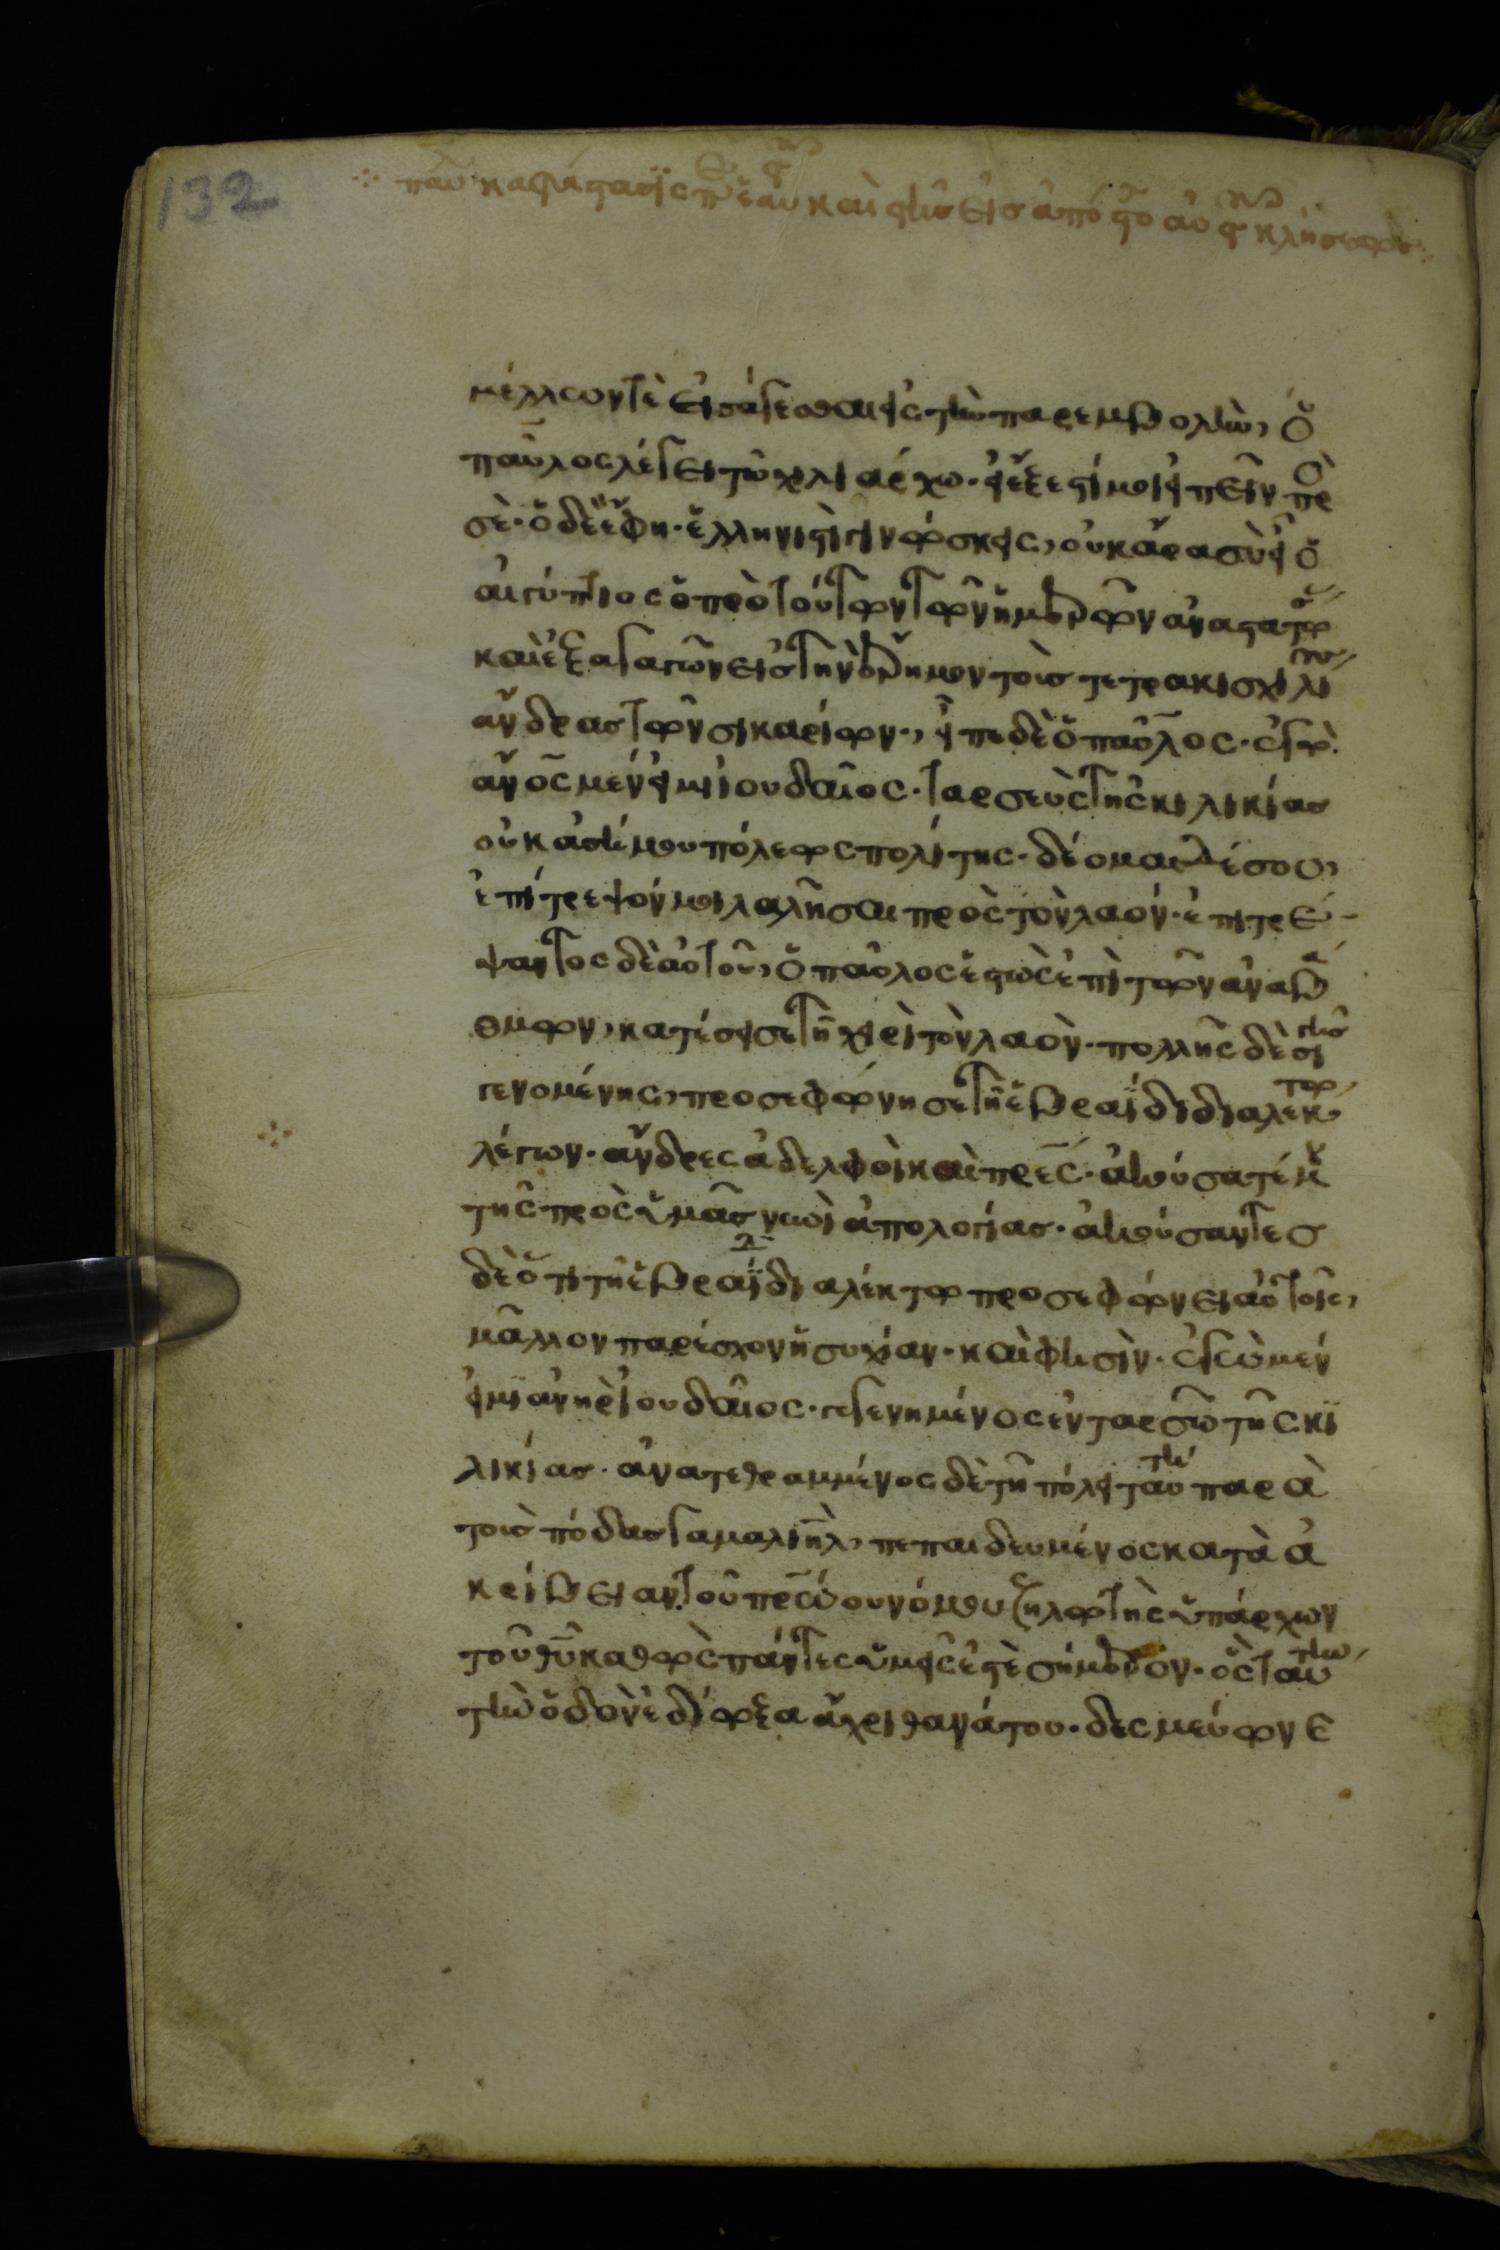 132
μέλλων τὲ εἰσάγεσθαι εἰς τὴν παρεμβολὴν, ὁ
παῦλος λέγει τῶ χιλιάρχω· εἰ ἔξεστί μοι εἰπεῖν πρ
σὲ· ὁ δὲ ἔφη· ἑλληνιστὶ γινώσκεις, οὐκ ἄρα σὺ εἶ ὁ
αἰγύπτιος ὁ πρὸ τούτων τῶν ἡμερῶν ἀναστατώ
καὶ ἐξαγαγὼν εἰς τὴν ἔρημον τοὺς τετρακισχιλί
ἄνδρας τῶν σικαρίων·, εἶπε δὲ ὁ παῦλος· ἐγὼ
ἄνος μέν εἰμι ἰουδαῖος· ταρσεὺς τῆς κιλικίας
οὐκ ἀσήμου πόλεως πολίτης· δέομαι δέ σου,
ἐπίτρεψόν μοι λαλῆσαι πρὸς τὸν λαόν· ἐπιτρέ
ψαντος δὲ αὐτοῦ, ὁ παῦλος ἑστὼς ἐπὶ τῶν ἀναβα
θμων, κατέσεισε τῆ χειρὶ τὸν λαὸν· πολλῆς δὲ σιγῆς
γενομένης, προσεφώνησε τῆ ἑβραΐδι διαλέκτω
λέγων· ἄνδρες ἀδελφοὶ καὶ πρες· ἀκούσατέ μου
τῆς πρὸς ὑμᾶς νυνὶ ἀπολογίας· ἀκούσαντες
δὲ ὅτι τῆ ἑβραΐδι διαλέκτω προσεφώνει αὐτοῖς,
μᾶλλον παρέσχον ἡσυχίαν· καὶ φησὶν· ἐγὼ μέν
εἰμι ἀνὴρ ἰουδαῖος· γεγενημένος ἐν ταρσῶ τῆς κι
λικίας· ἀνατεθραμμένος δὲ τῆ πόλει ταύτη παρὰ
τοὺς πόδας γαμαλιὴλ, πεπαιδευμένος κατὰ ἀ
κρίβειαν τοῦ πρώου νόμου ζηλωτὴς ὑπάρχων
τοῦ θυ καθὼς πάντες ὑμεῖς ἐστὲ σήμερον· ὃς ταύτην
τὴν ὁδὸν ἐδίωξα ἄχρι θανάτου· δεσμεύων ε